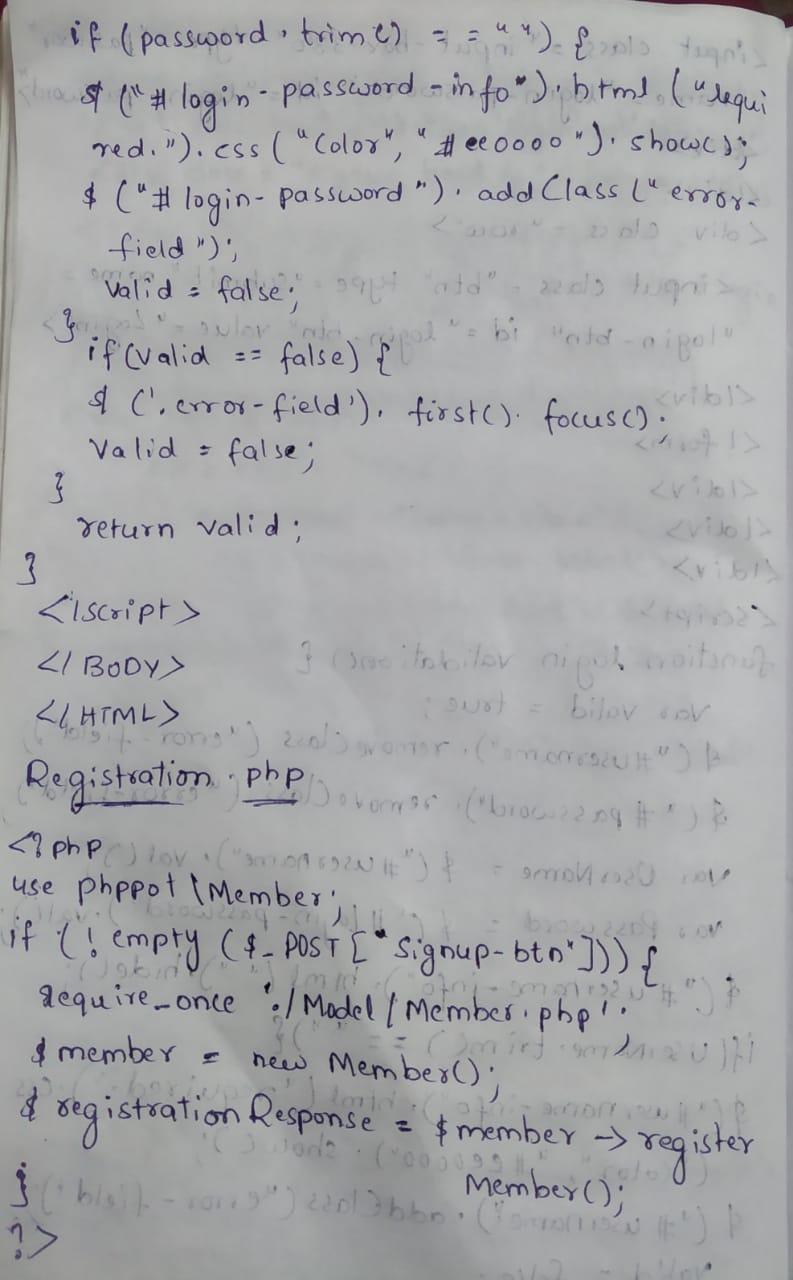 if (password.trim() == "") {
$("#login-password-info").html("requi
red.").css("Color", "#ee0000").show();
$("#login-password").addClass("error-
field");
Valid = false;
}
if(valid == false) {
$('.error-field').first().focus();
Valid = false;
}
return valid;
}
</script>
</BODY>
</HTML>
Registration.php
<?php
use phppot\Member;
if (!empty($_POST["Signup-btn"])) {
require_once './Model/Member.php';
$member = new Member();
$registrationResponse = $member->register
Member();
}
?>